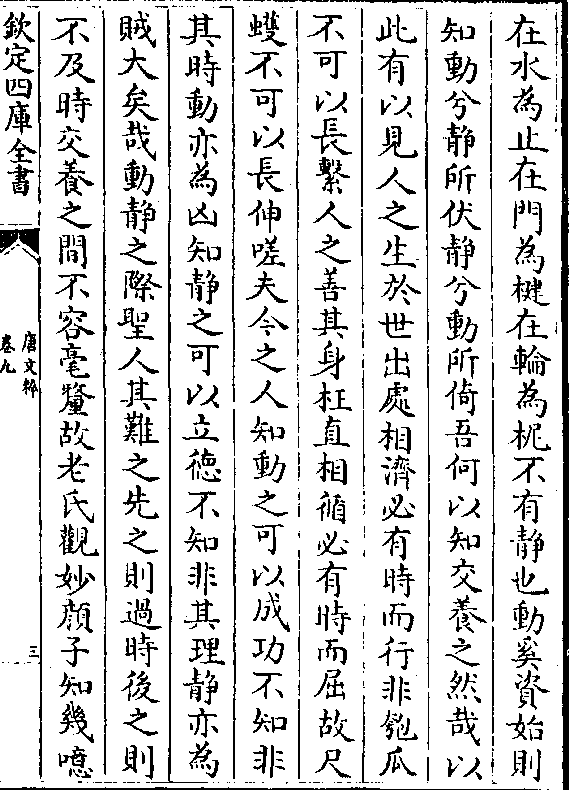 在水為止在門為楗在輪為柅不有静也動奚資始則
知動兮静所伏静兮動所倚吾何以知交養之然哉以
此有以見人之生於世出處相濟必有時而行非匏瓜
不可以長繫人之善其身枉直相循必有時而屈故尺
蠖不可以長伸嗟夫今之人知動之可以成功不知非
其時動亦為凶知静之可以立徳不知非其理静亦為
賊大矣哉動静之際聖人其難之先之則過時後之則
不及時交養之間不容毫釐故老氏觀妙顔子知幾噫
欽定四庫全書
唐文粹
卷九
三